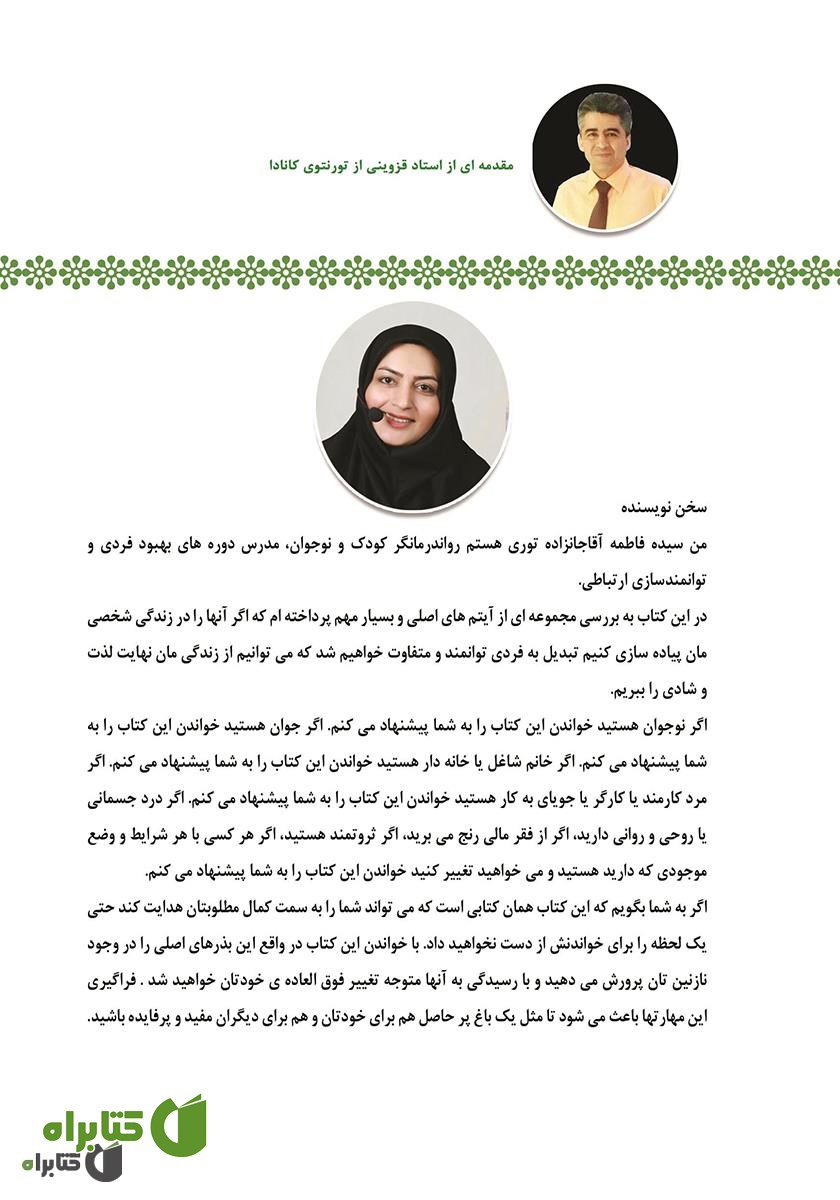 مقدمه ای از استاد قزوینی از تورنتوی کانادا
سخن نویسنده
من سیده فاطمه آقاجانزاده توری هستم رواندرمانگر کودک و نوجوان، مدرس دوره های بهبود فردی و
توانمندسازی ارتباطی.
در این کتاب به بررسی مجموعه ای از آیتم های اصلی و بسیار مهم پرداخته ام که اگر آنها را در زندگی شخصی
مان پیاده سازی کنیم تبدیل به فردی توانمند و متفاوت خواهیم شد که می توانیم از زندگی مان نهایت لذت
و شادی را ببریم.
اگر نوجوان هستید خواندن این کتاب را به شما پیشنهاد می کنم. اگر جوان هستید خواندن این کتاب را به
شما پیشنهاد می کنم. اگر خانم شاغل یا خانه دار هستید خواندن این کتاب را به شما پیشنهاد می کنم. اگر
مرد کارمند یا کارگر یا جویای به کار هستید خواندن این کتاب را به شما پیشنهاد می کنم. اگر درد جسمانی
یا روحی و روانی دارید، اگر از فقر مالی رنج می برید، اگر ثروتمند هستید، اگر هر کسی با هر شرایط و وضع
موجودی که دارید هستید و می خواهید تغییر کنید خواندن این کتاب را به شما پیشنهاد می کنم.
اگر به شما بگویم که این کتاب همان کتابی است که می تواند شما را به سمت کمال مطلوبتان هدایت کند حتی
یک لحظه را برای خواندنش از دست نخواهید داد. با خواندن این کتاب در واقع این بذرهای اصلی را در وجود
نازنین تان پرورش می دهید و با رسیدگی به آنها متوجه تغییر فوق العاده ی خودتان خواهید شد . فراگیری
این مهارتها باعث می شود تا مثل یک باغ پر حاصل هم برای خودتان و هم برای دیگران مفید و پرفایده باشید.
کتابراه
کتابراه